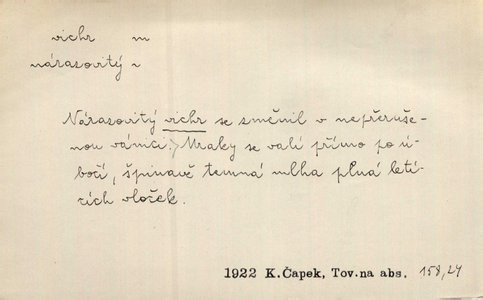 vichr m
nárazovitý ~
Nárazovitý vichr se změnil v nepřeruše-
nou vánici. > Mraky se valí přímo po ú-
bočí, špinavě temná mlha plná letí-
cích vloček.
1922 K.Čapek, Tov.na abs. 158,24